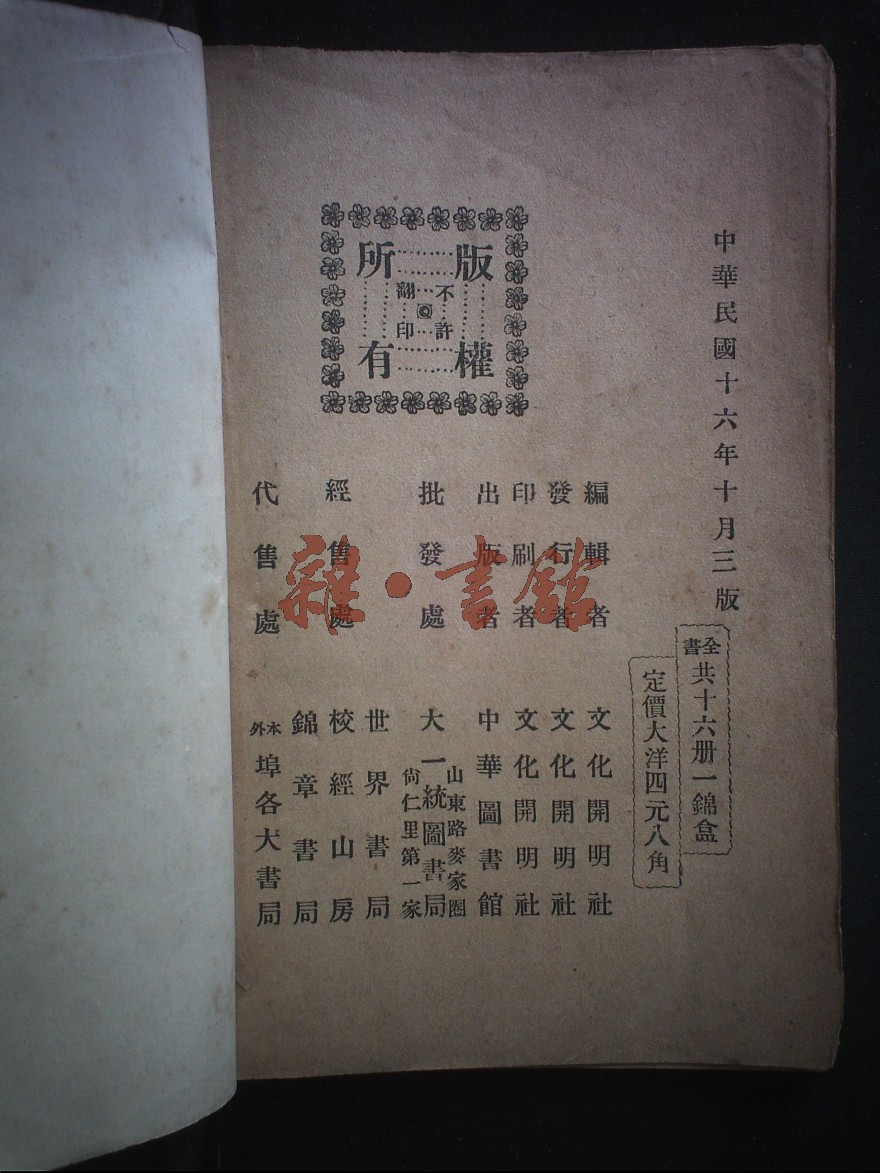 中華民國十六年十月三版
全書共十六册一錦盒
定價大洋四元八角
版權所有
不許翻印
編輯者 文化開明社
發行者 文化開明社
印刷者 文化開明社
出版者 中華圖書館
批發處 大一統圖書局
山東路麥家圈
尙仁里第一家
經售處 世界書局
校經山房
錦章書局
代售處 本外埠各大書局
雜·書館